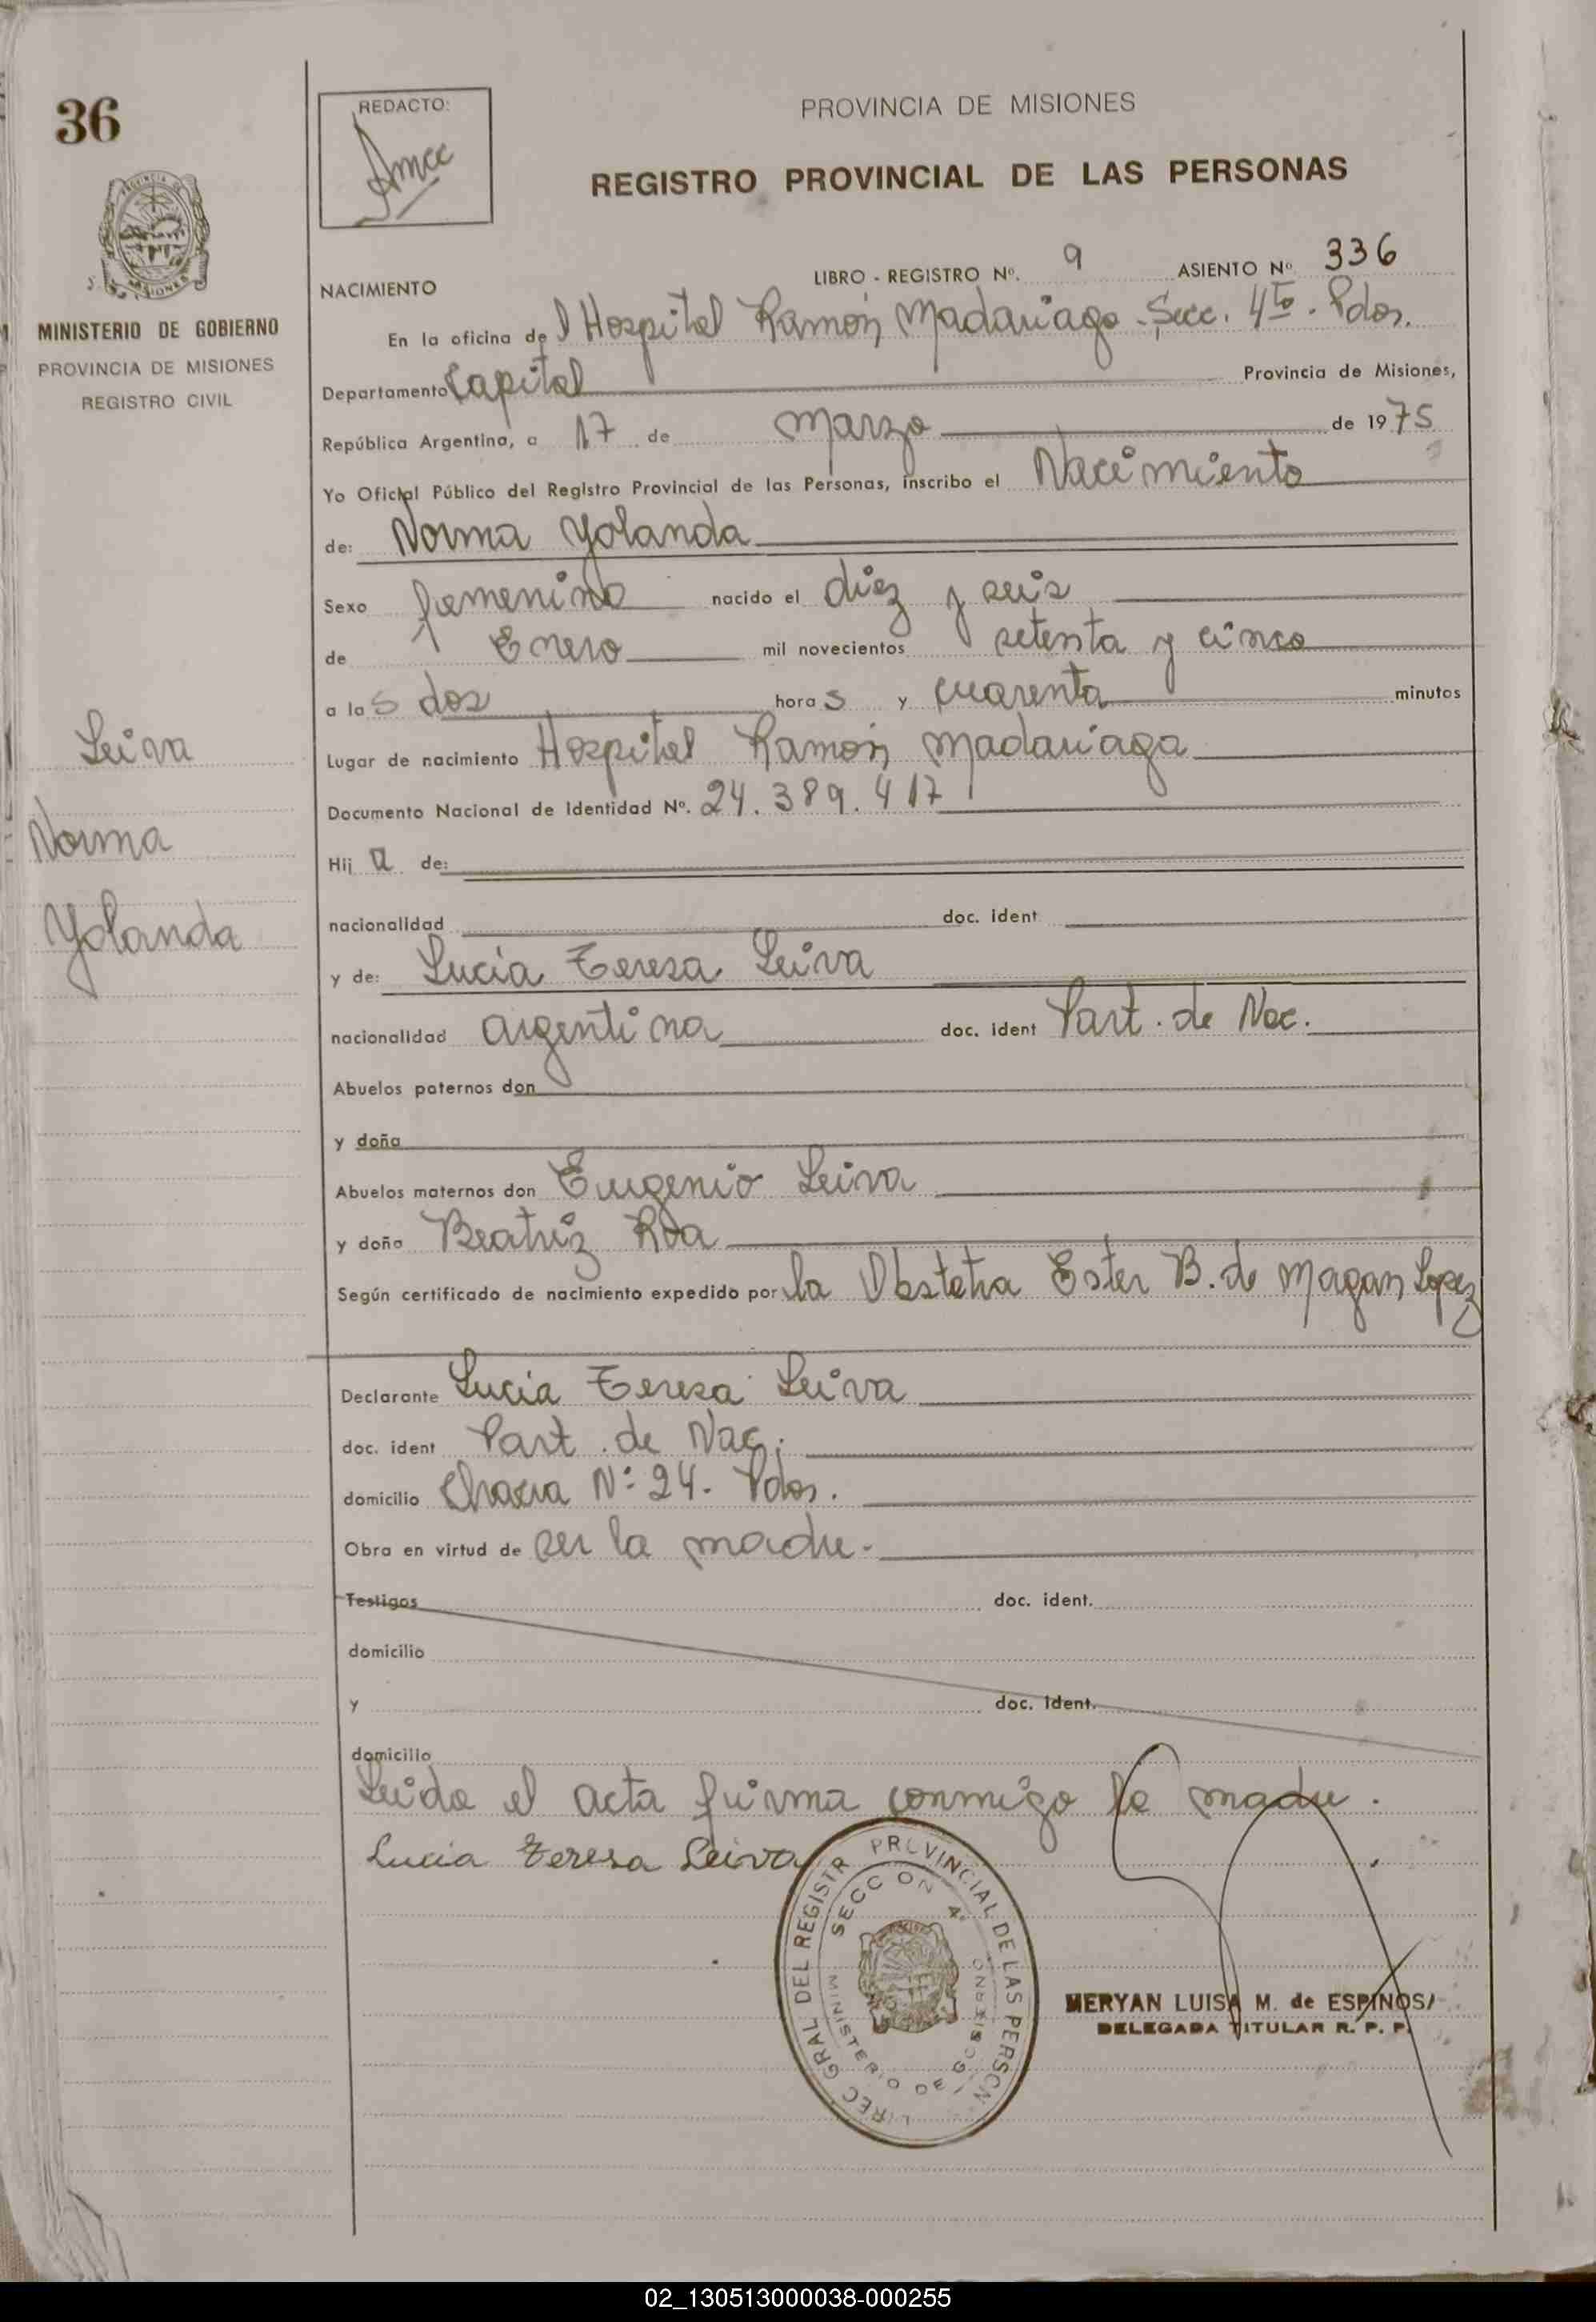 36
REDACTO:
PROVINCIA DE MISIONES
REGISTRO PROVINCIAL DE LAS PERSONAS
NACIMIENTO LIBRO - REGISTRO Nº. 9 ASIENTO Nº 336
MINISTERIO DE GOBIERNO
PROVINCIA DE MISIONES
REGISTRO CIVIL
En la oficina del Hospital Ramón Madariaga - Secc. 4ta. Pdas.
Departamento Capital Provincia de Misiones,
República Argentina, a 17 de Marzo de 1975
Yo Oficial Público del Registro Provincial de las Personas, inscribo el Nacimiento
de: Norma Yolanda
Sexo femenino nacido el diez y seis
de Enero mil novecientos setenta y cinco
a las dos horas y cuarenta minutos
Lugar de nacimiento Hospital Ramón Madariaga
Documento Nacional de Identidad Nº. 24.389.417
Leiva
Norma
Yolanda
Hija de:
nacionalidad doc. ident
y de: Lucia Teresa Leiva
nacionalidad argentina doc. ident Part. de Nac.
Abuelos paternos don
y doña
Abuelos maternos don Eugenio Leiva
y doña Beatriz Roa
Según certificado de nacimiento expedido por la Obstetra Ester B. de Magan Lopez
Declarante Lucia Teresa Leiva
doc. ident Part. de Nac.
domicilio Chacra Nº 24. Pdas.
Obra en virtud de ser la madre.
Testigos doc. ident.
domicilio
y doc. ident.
domicilio
Leida el acta firma conmigo la madre.
Lucia Teresa Leiva
DEL REGISTR PROVINCIAL DE LAS PERSON
SECCION 4ª
MINISTERIO DE GOBIERNO
MERYAN LUISA M. de ESPINOS
DELEGADA TITULAR R. P. P.
02_130513000038-000255